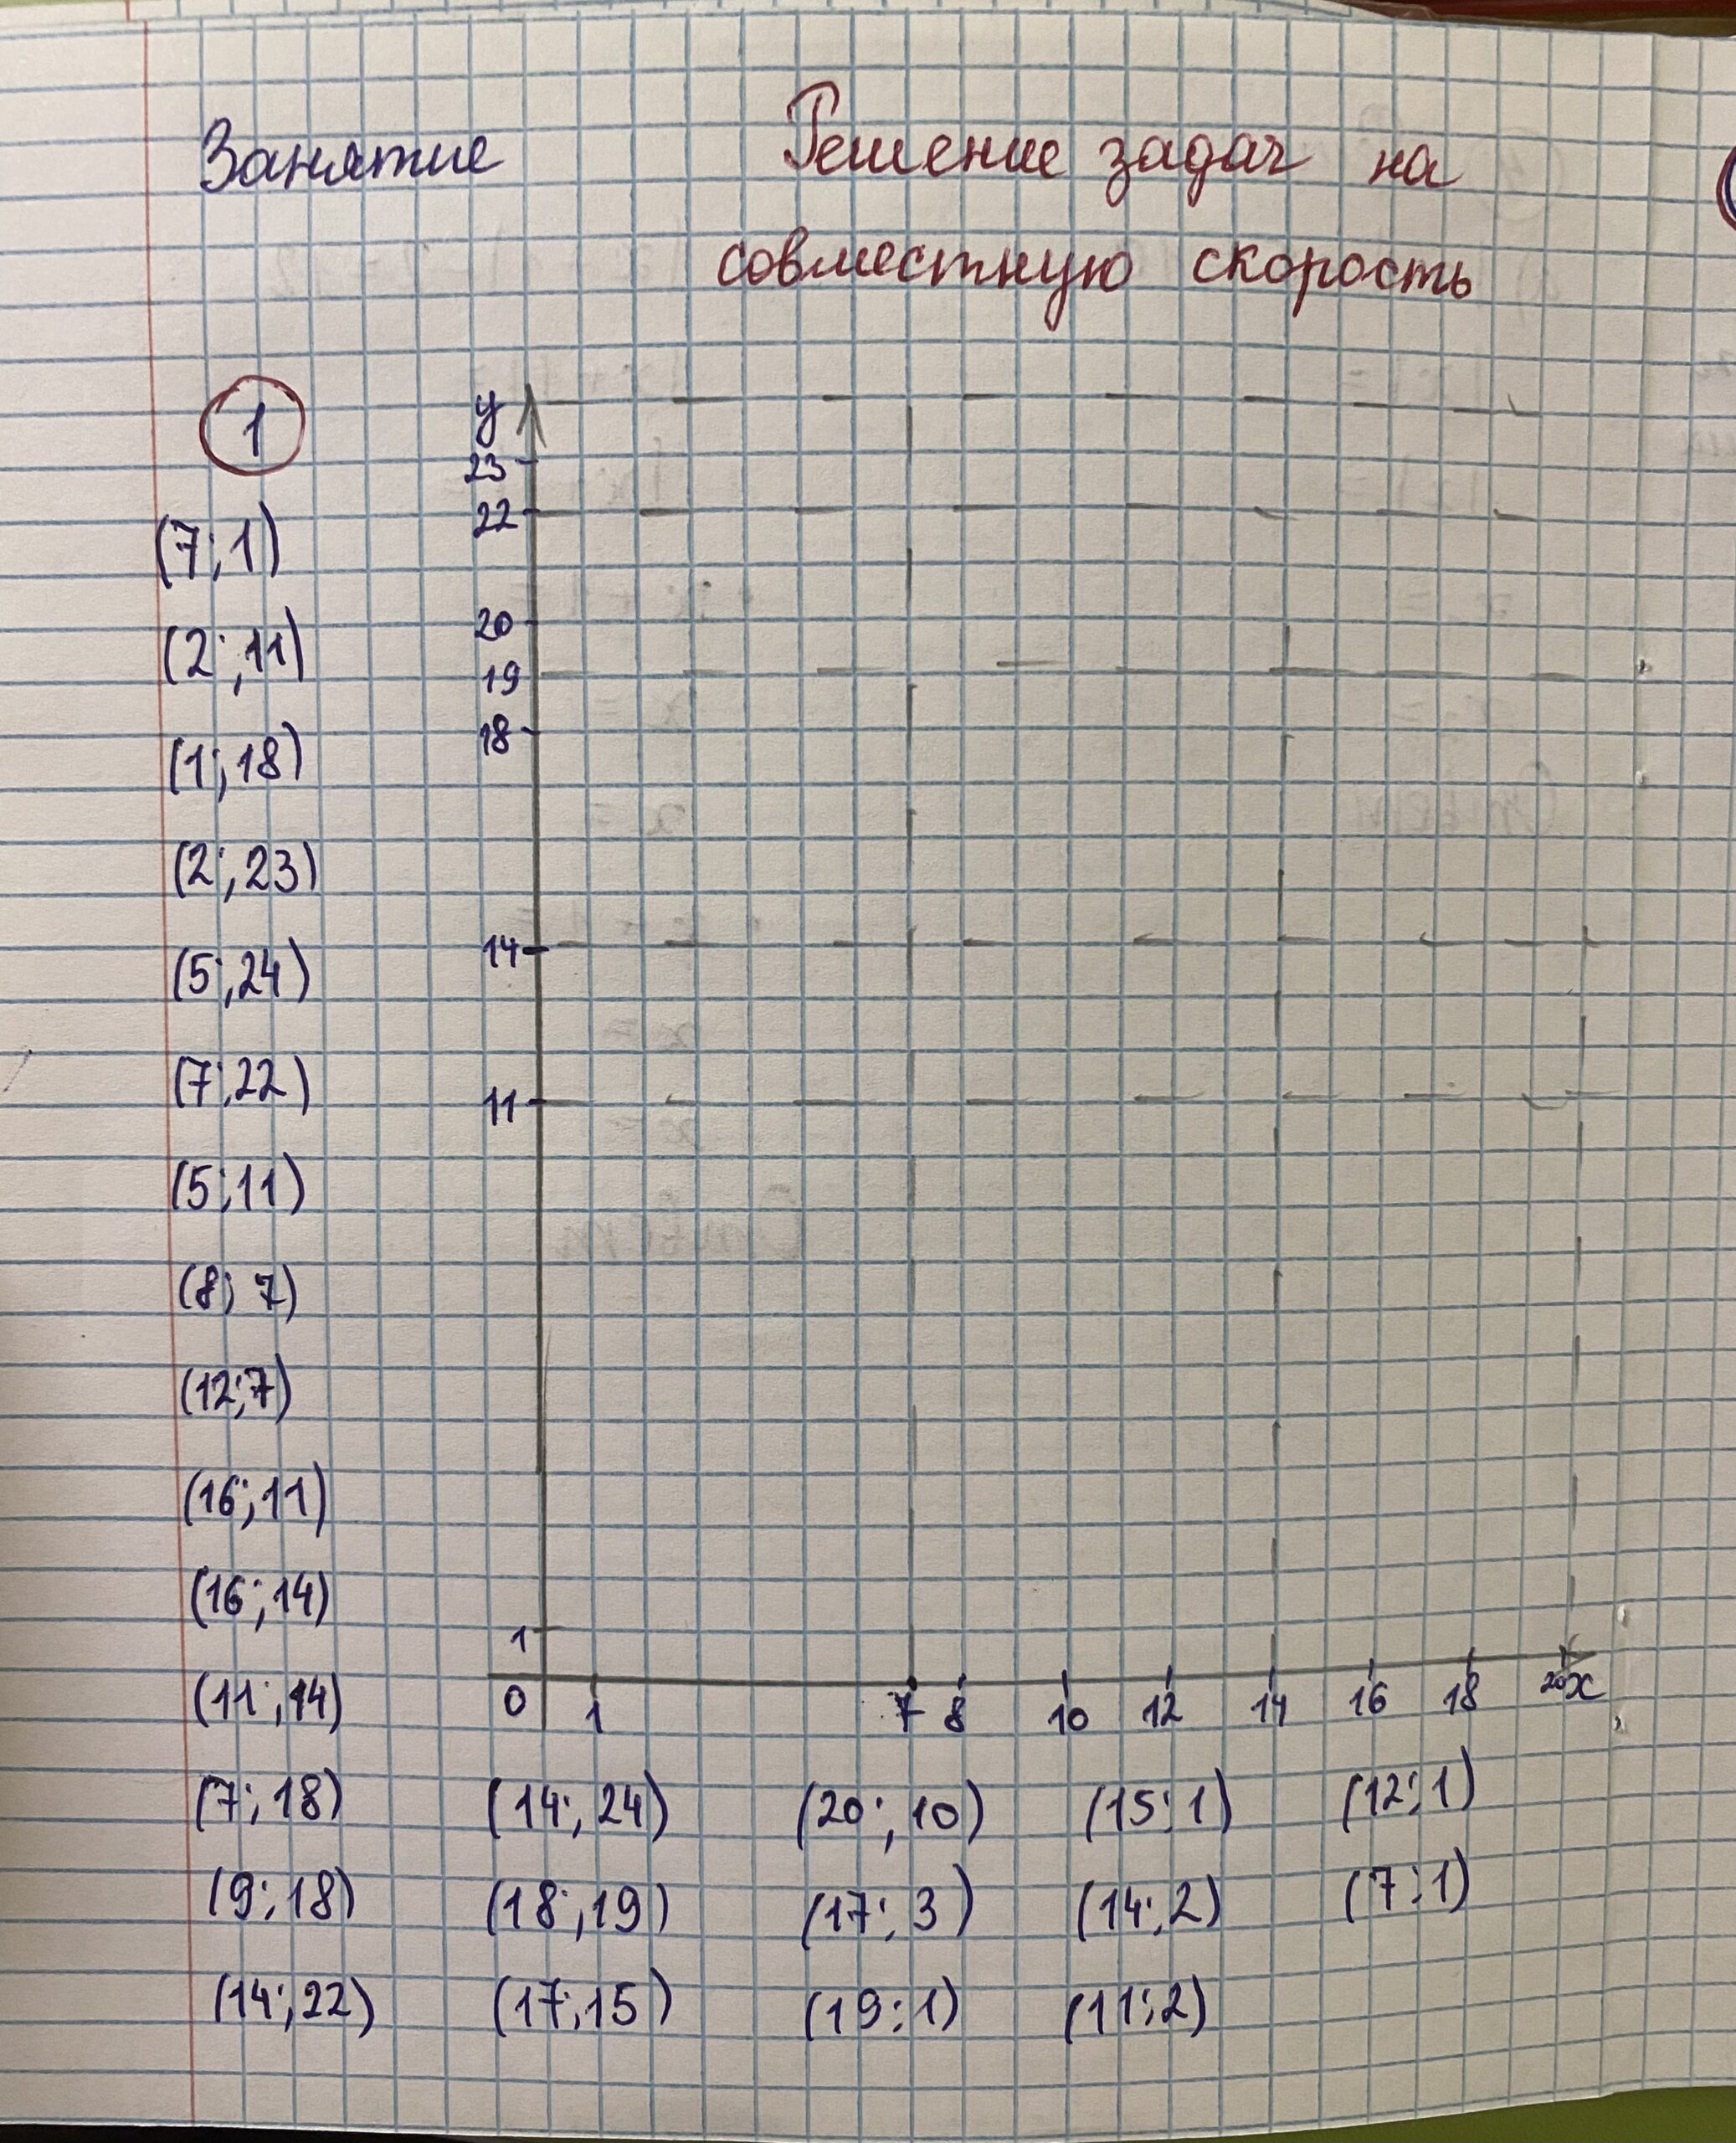 Занятие Решение задач на
совместную скорость
1
y
23
22
20
19
18
14
11
1
0 1 7 8 10 12 14 16 18 20 x
(7; 1)
(2; 11)
(1; 18)
(2; 23)
(5; 24)
(7; 22)
(5; 11)
(8; 7)
(12; 7)
(16; 11)
(16; 14)
(11; 14)
(7; 18) (14; 24) (20; 10) (15; 1) (12; 1)
(9; 18) (18; 19) (17; 3) (14; 2) (7; 1)
(14; 22) (17; 15) (19; 1) (11; 2)